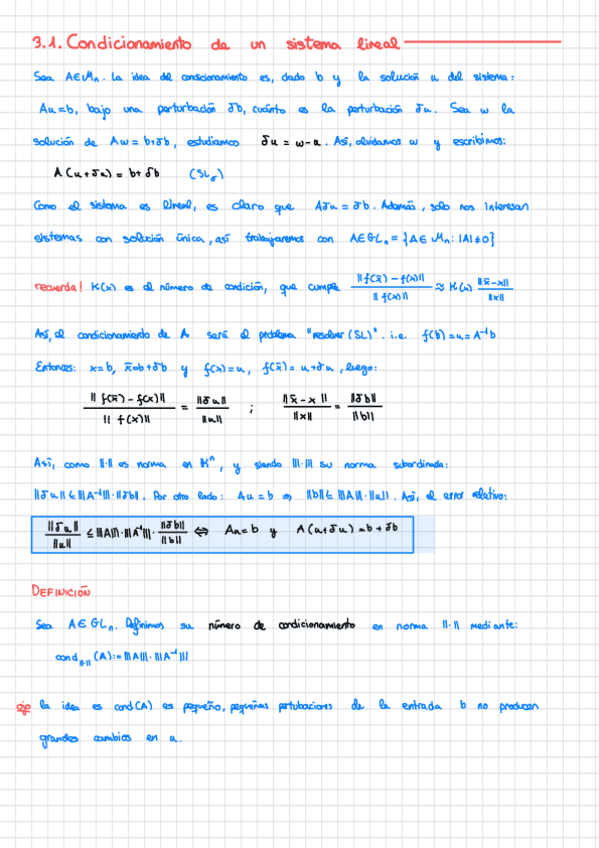 3.1. Condicionamiento de un sistema lineal
Sea A∈Mₙ. La idea del condicionamiento es, dado b y la solución u del sistema:
Au=b, bajo una perturbación δb, cuánto es la perturbación δu. Sea w la
solución de Aw=b+δb, estudiamos δu = w-u. Así, olvidamos w y escribimos:
A(u+δu) = b+δb (SL_δ)
Como el sistema es lineal, es claro que Aδu = δb. Además, solo nos interesan
sistemas con solución única, así trabajaremos con A∈GLₙ = {A∈Mₙ: |A|≠0}
recuerda! K(x) es el número de condición, que cumple ||f(x̄) - f(x)|| / ||f(x)|| ≈ K(x) ||x̄-x|| / ||x||
Así, el condicionamiento de A será el problema "resolver (SL)". i.e. f(b)=u=A⁻¹b
Entonces: x=b, x̄=b+δb y f(x)=u, f(x̄)=u+δu, luego:
||f(x̄) - f(x)|| / ||f(x)|| = ||δu|| / ||u|| ; ||x̄-x|| / ||x|| = ||δb|| / ||b||
Así, como ||·|| es norma en Kⁿ, y siendo |||·||| su norma subordinada:
||δu|| ≤ |||A⁻¹|||·||δb||. Por otro lado: Au=b ⇒ ||b|| ≤ |||A|||·||u||. Así, el error relativo:
||δu|| / ||u|| ≤ |||A|||·|||A⁻¹|||· ||δb|| / ||b|| ⇔ Au=b y A(u+δu)=b+δb
DEFINICIÓN
Sea A∈GLₙ. Definimos su número de condicionamiento en norma ||·|| mediante:
cond_||·|| (A):=|||A|||·|||A⁻¹|||
ojo la idea es cond(A) es pequeño, pequeñas pertubaciones de la entrada b no producen
grandes cambios en u.